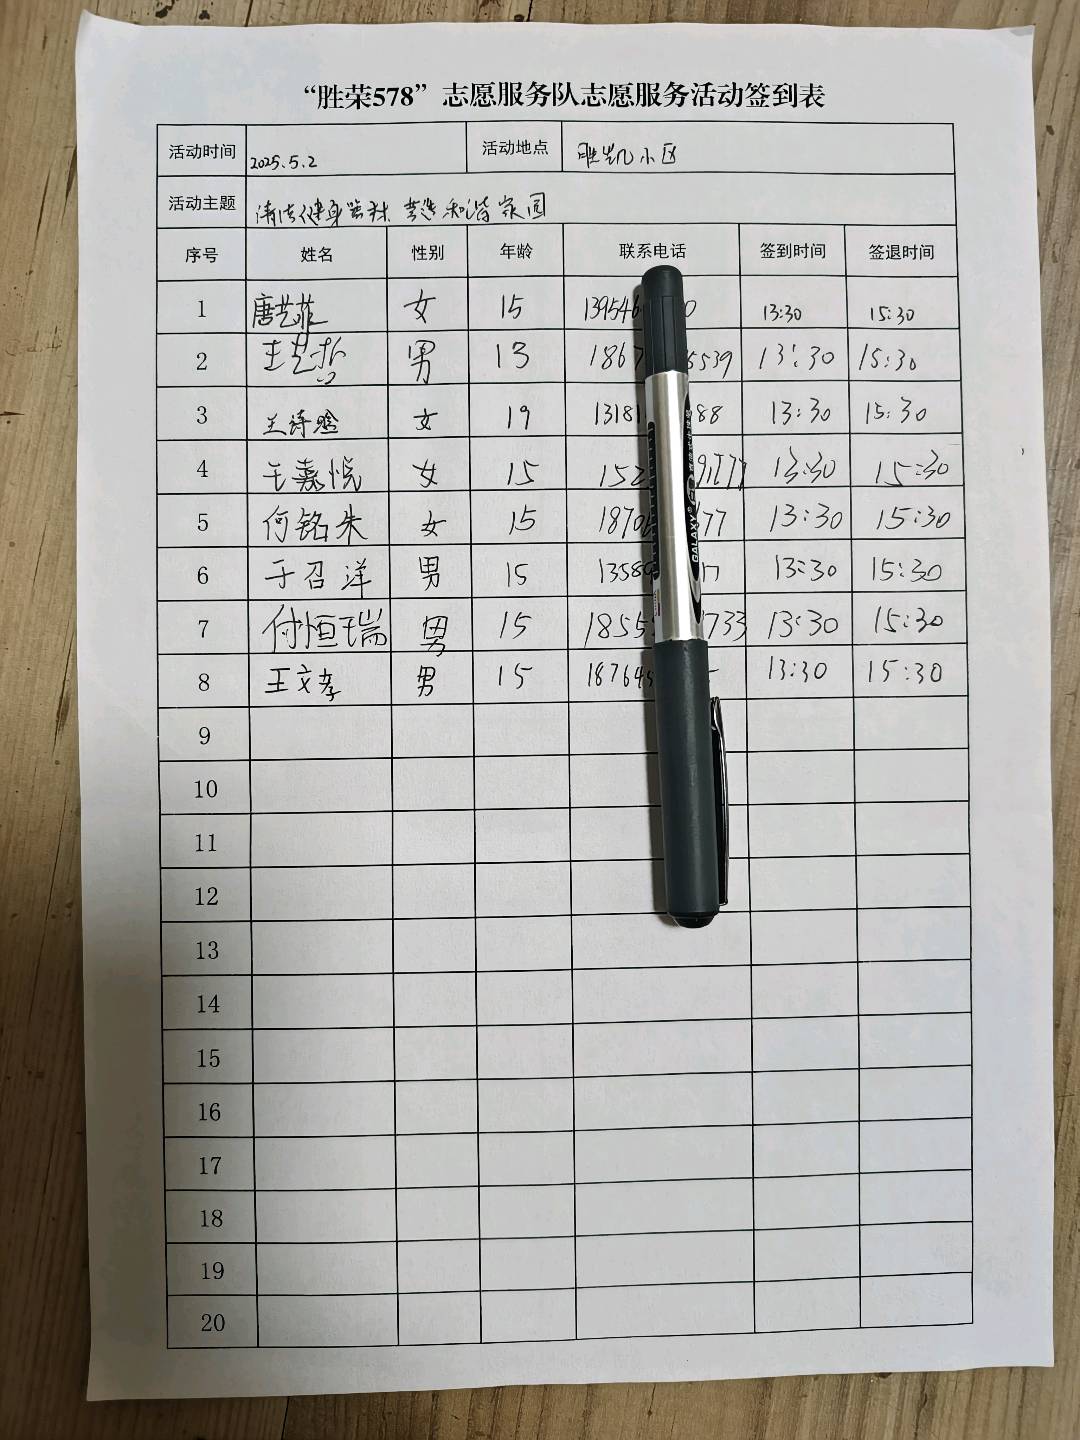 “胜荣578”志愿服务队志愿服务活动签到表
活动时间 2025.5.2 活动地点 胜凯小区
活动主题 清洁健身器材 共造和谐家园
序号 姓名 性别 年龄 联系电话 签到时间 签退时间
1 唐艺菲 女 15 139546 0 13:30 15:30
2 王艺哲 男 13 1867 5539 13:30 15:30
3 王诗晗 女 19 1318 88 13:30 15:30
4 王嘉悦 女 15 152 9177 13:30 15:30
5 何铭朱 女 15 1870 177 13:30 15:30
6 于召洋 男 15 1358 17 13:30 15:30
7 付恒瑞 男 15 1855 733 13:30 15:30
8 王文孝 男 15 18764 13:30 15:30
9
10
11
12
13
14
15
16
17
18
19
20
GALAXY